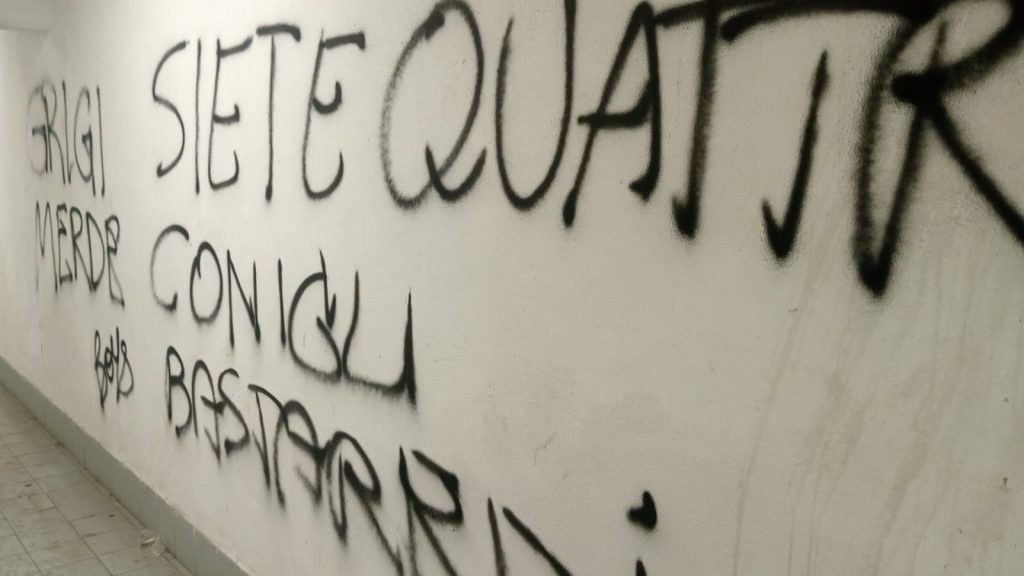 GRIGI
MERDE
BOYS
SIETE QUATTR
CONIGLI
BASTARDI